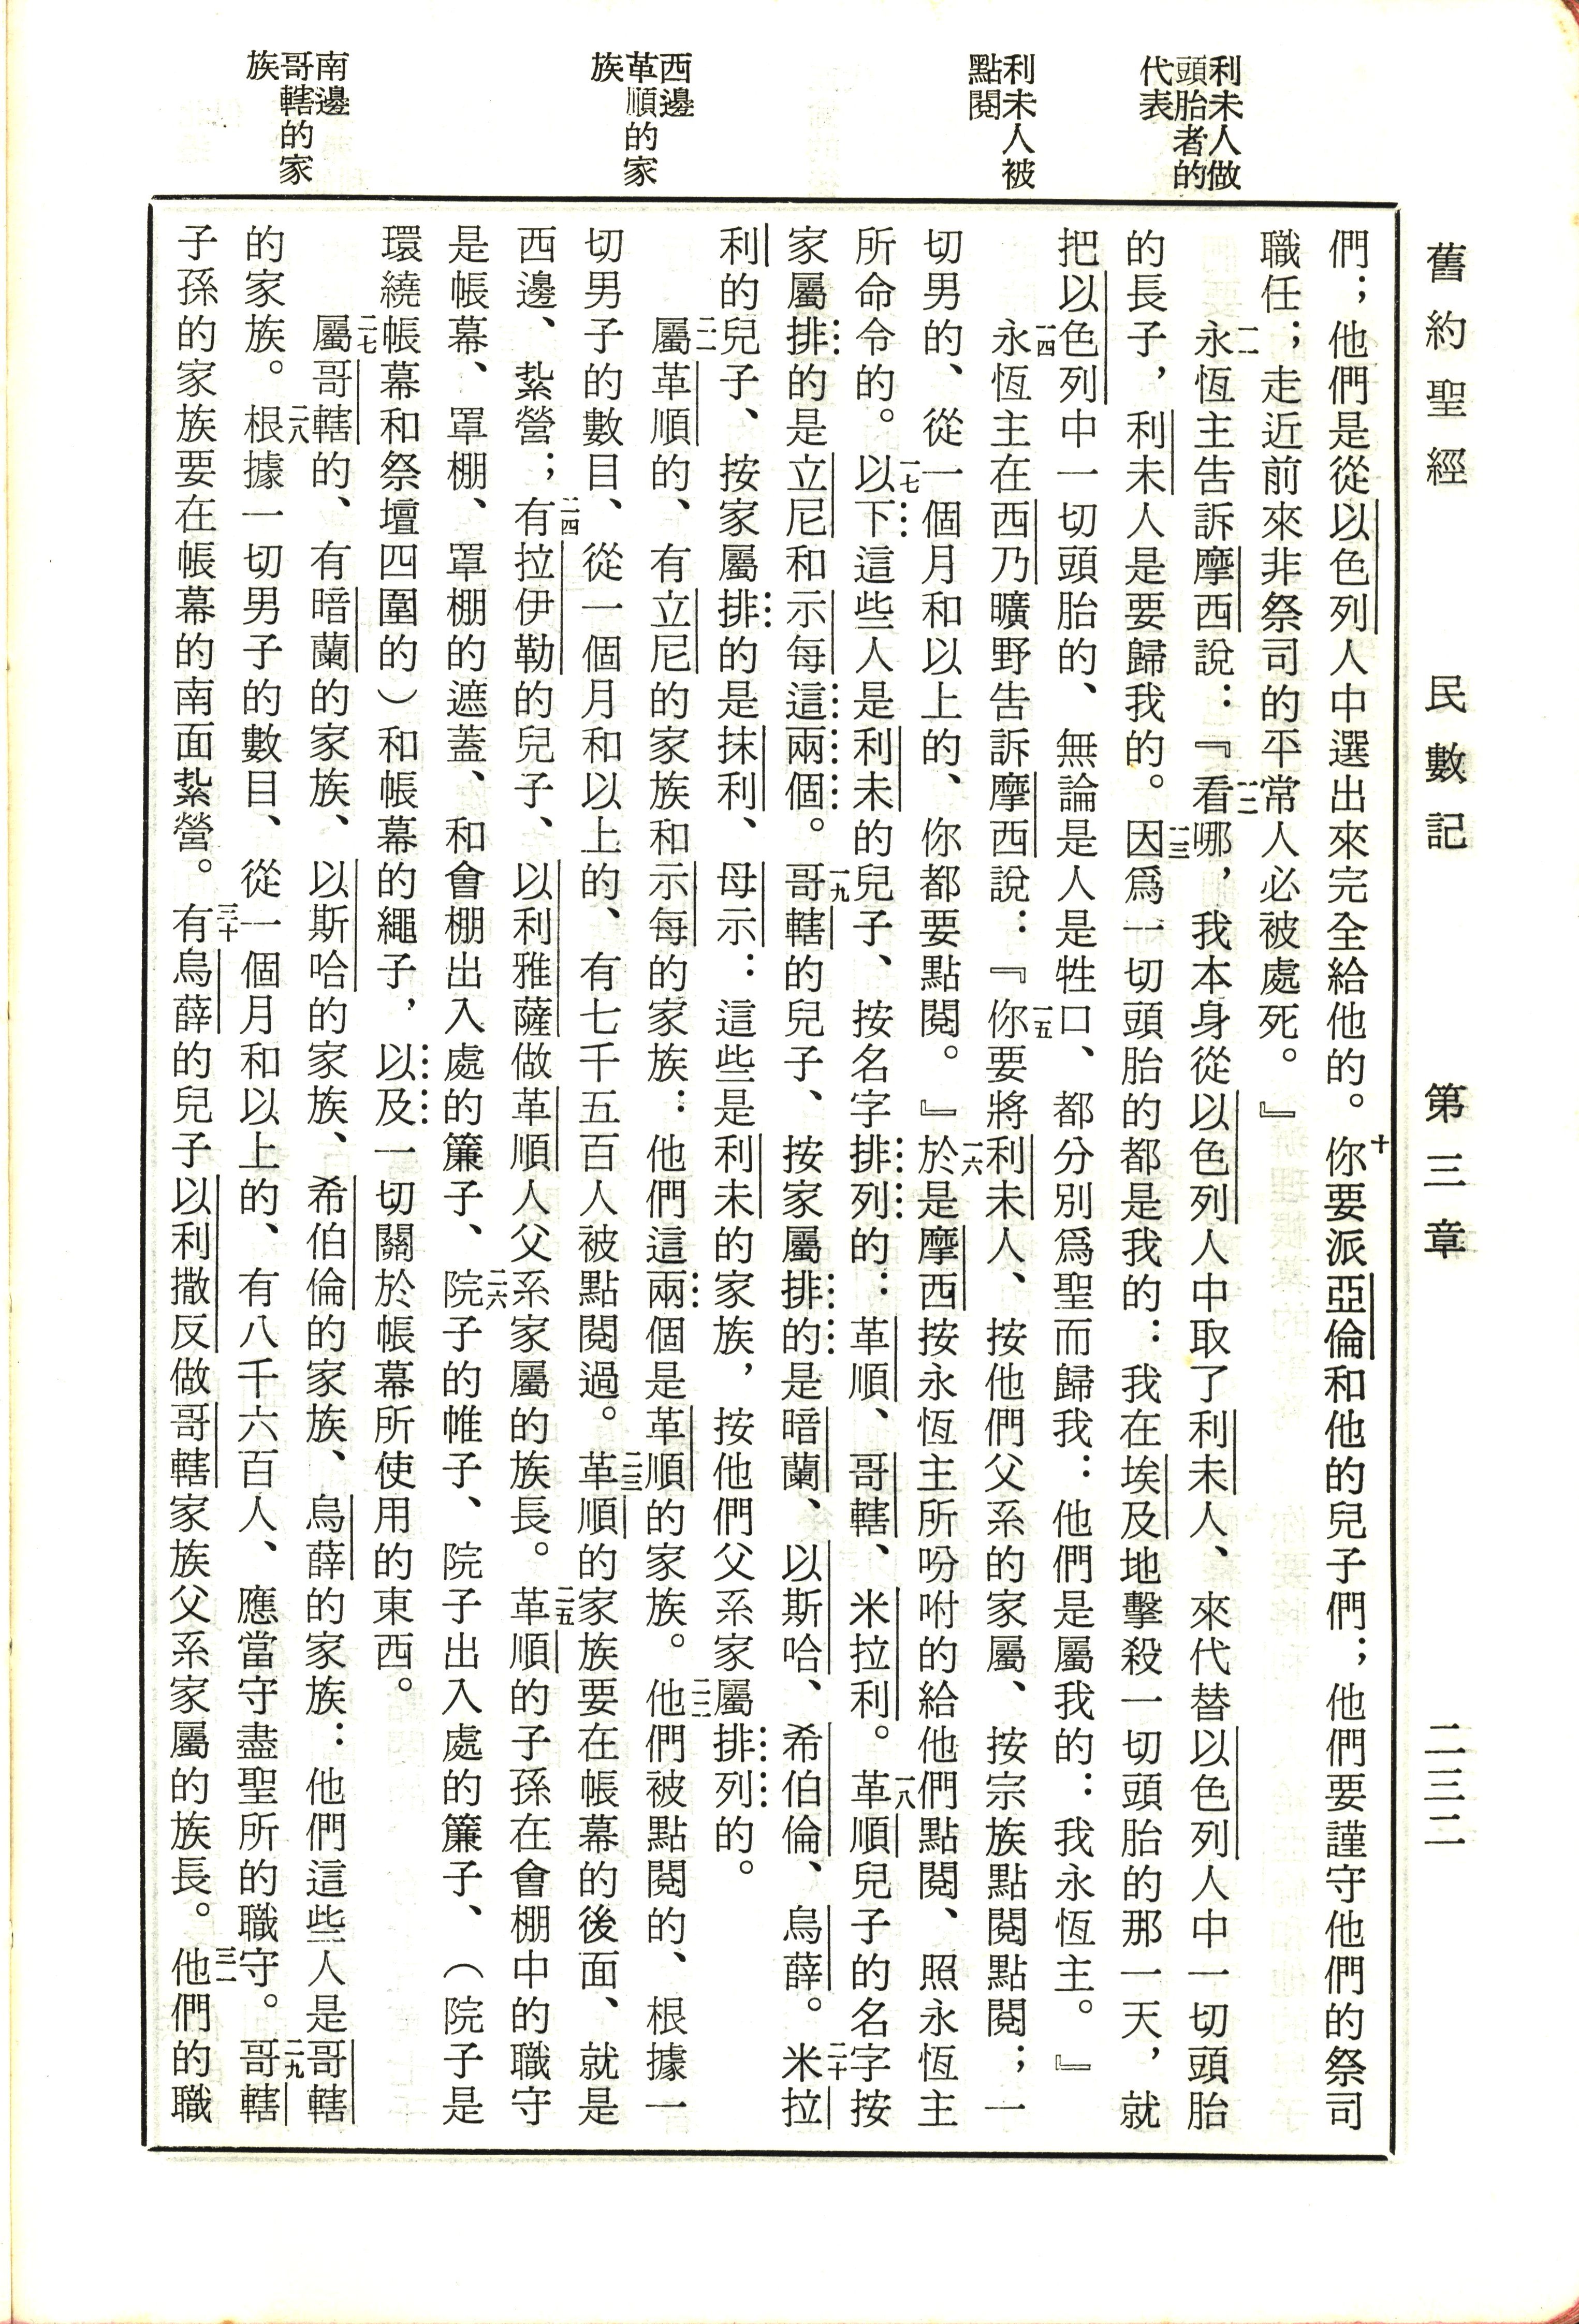 舊約聖經　民數記　第三章　二三二
利未人做
頭胎者的
代表
利未人被
點閱
西邊
革順的家
族
南邊
哥轄的家
族
們；他們是從以色列人中選出來完全給他的。十你要派亞倫和他的兒子們；他們要謹守他們的祭司
職任；走近前來非祭司的平常人必被處死。』
一一永恆主告訴摩西說：『一二看哪，我本身從以色列人中取了利未人、來代替以色列人中一切頭胎
的長子，利未人是要歸我的。一三因爲一切頭胎的都是我的：我在埃及地擊殺一切頭胎的那一天，就
把以色列中一切頭胎的、無論是人是牲口、都分別爲聖而歸我：他們是屬我的：我永恆主。』
一四永恆主在西乃曠野告訴摩西說：『一五你要將利未人、按他們父系的家屬、按宗族點閱點閱；一
切男的、從一個月和以上的、你都要點閱。』一六於是摩西按永恆主所吩咐的給他們點閱、照永恆主
所命令的。一七以下這些人是利未的兒子、按名字排列的：革順、哥轄、米拉利。一八革順兒子的名字按
家屬排的是立尼和示每這兩個。一九哥轄的兒子、按家屬排的是暗蘭、以斯哈、希伯倫、烏薛。二十米拉
利的兒子、按家屬排的是抹利、母示：這些是利未的家族，按他們父系家屬排列的。
二一屬革順的、有立尼的家族和示每的家族：他們這兩個是革順的家族。二二他們被點閱的、根據一
切男子的數目、從一個月和以上的、有七千五百人被點閱過。二三革順的家族要在帳幕的後面、就是
西邊、紮營；二四有拉伊勒的兒子、以利雅薩做革順人父系家屬的族長。二五革順的子孫在會棚中的職守
是帳幕、罩棚、罩棚的遮蓋、和會棚出入處的簾子、二六院子的帷子、院子出入處的簾子、（院子是
環繞帳幕和祭壇四圍的）和帳幕的繩子，以及一切關於帳幕所使用的東西。
二七屬哥轄的、有暗蘭的家族、以斯哈的家族、希伯倫的家族、烏薛的家族：他們這些人是哥轄
的家族。二八根據一切男子的數目、從一個月和以上的、有八千六百人、應當守盡聖所的職守。二九哥轄
子孫的家族要在帳幕的南面紮營。三十有烏薛的兒子以利撒反做哥轄家族父系家屬的族長。三一他們的職